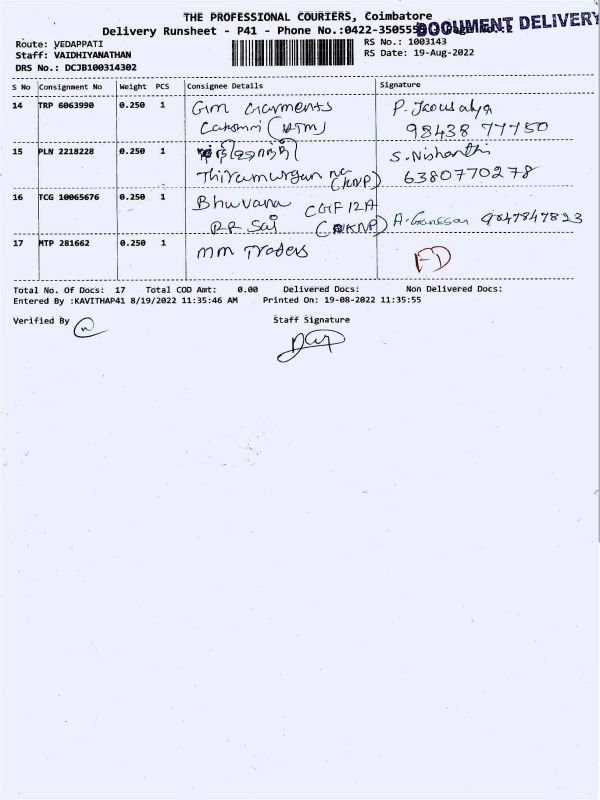 THE PROFESSIONAL COURIERS, Coimbatore
DOCUMENT DELIVERY
Delivery Runsheet - P41 - Phone No.:0422-350555
Route: VEDAPPATI
RS No.: 1003143
Staff: VAIDHIYANATHAN
RS Date: 19-Aug-2022
DRS No.: DCJB100314302
S No Consignment No Weight PCS Consignee Details Signature
14 TRP 6063990 0.250 1 Gm Garments
98438 77150
15 PLN 2218228 0.250 1 S. Nishanthi
Thirumurgan (KNP) 6380770278
16 TCG 10065676 0.250 1 Bhuvana CGF 12A
RR Sai (KNP) A. Ganesan 9847847823
17 MTP 281662 0.250 1 MM Traders FD
Total No. Of Docs: 17 Total COD Amt: 0.00 Delivered Docs: Non Delivered Docs:
Entered By :KAVITHAP41 8/19/2022 11:35:46 AM Printed On: 19-08-2022 11:35:55
Verified By Staff Signature